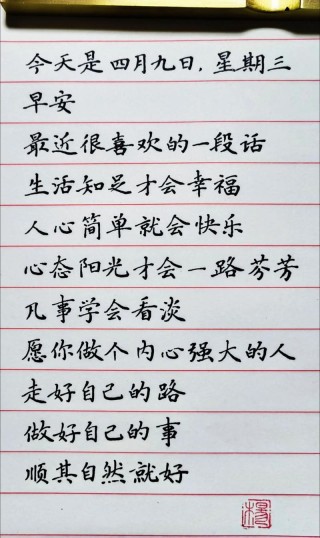 今天是四月九日，星期三
早安
最近很喜欢的一段话
生活知足才会幸福
人心简单就会快乐
心态阳光才会一路芬芳
凡事学会看淡
愿你做个内心强大的人
走好自己的路
做好自己的事
顺其自然就好
杨